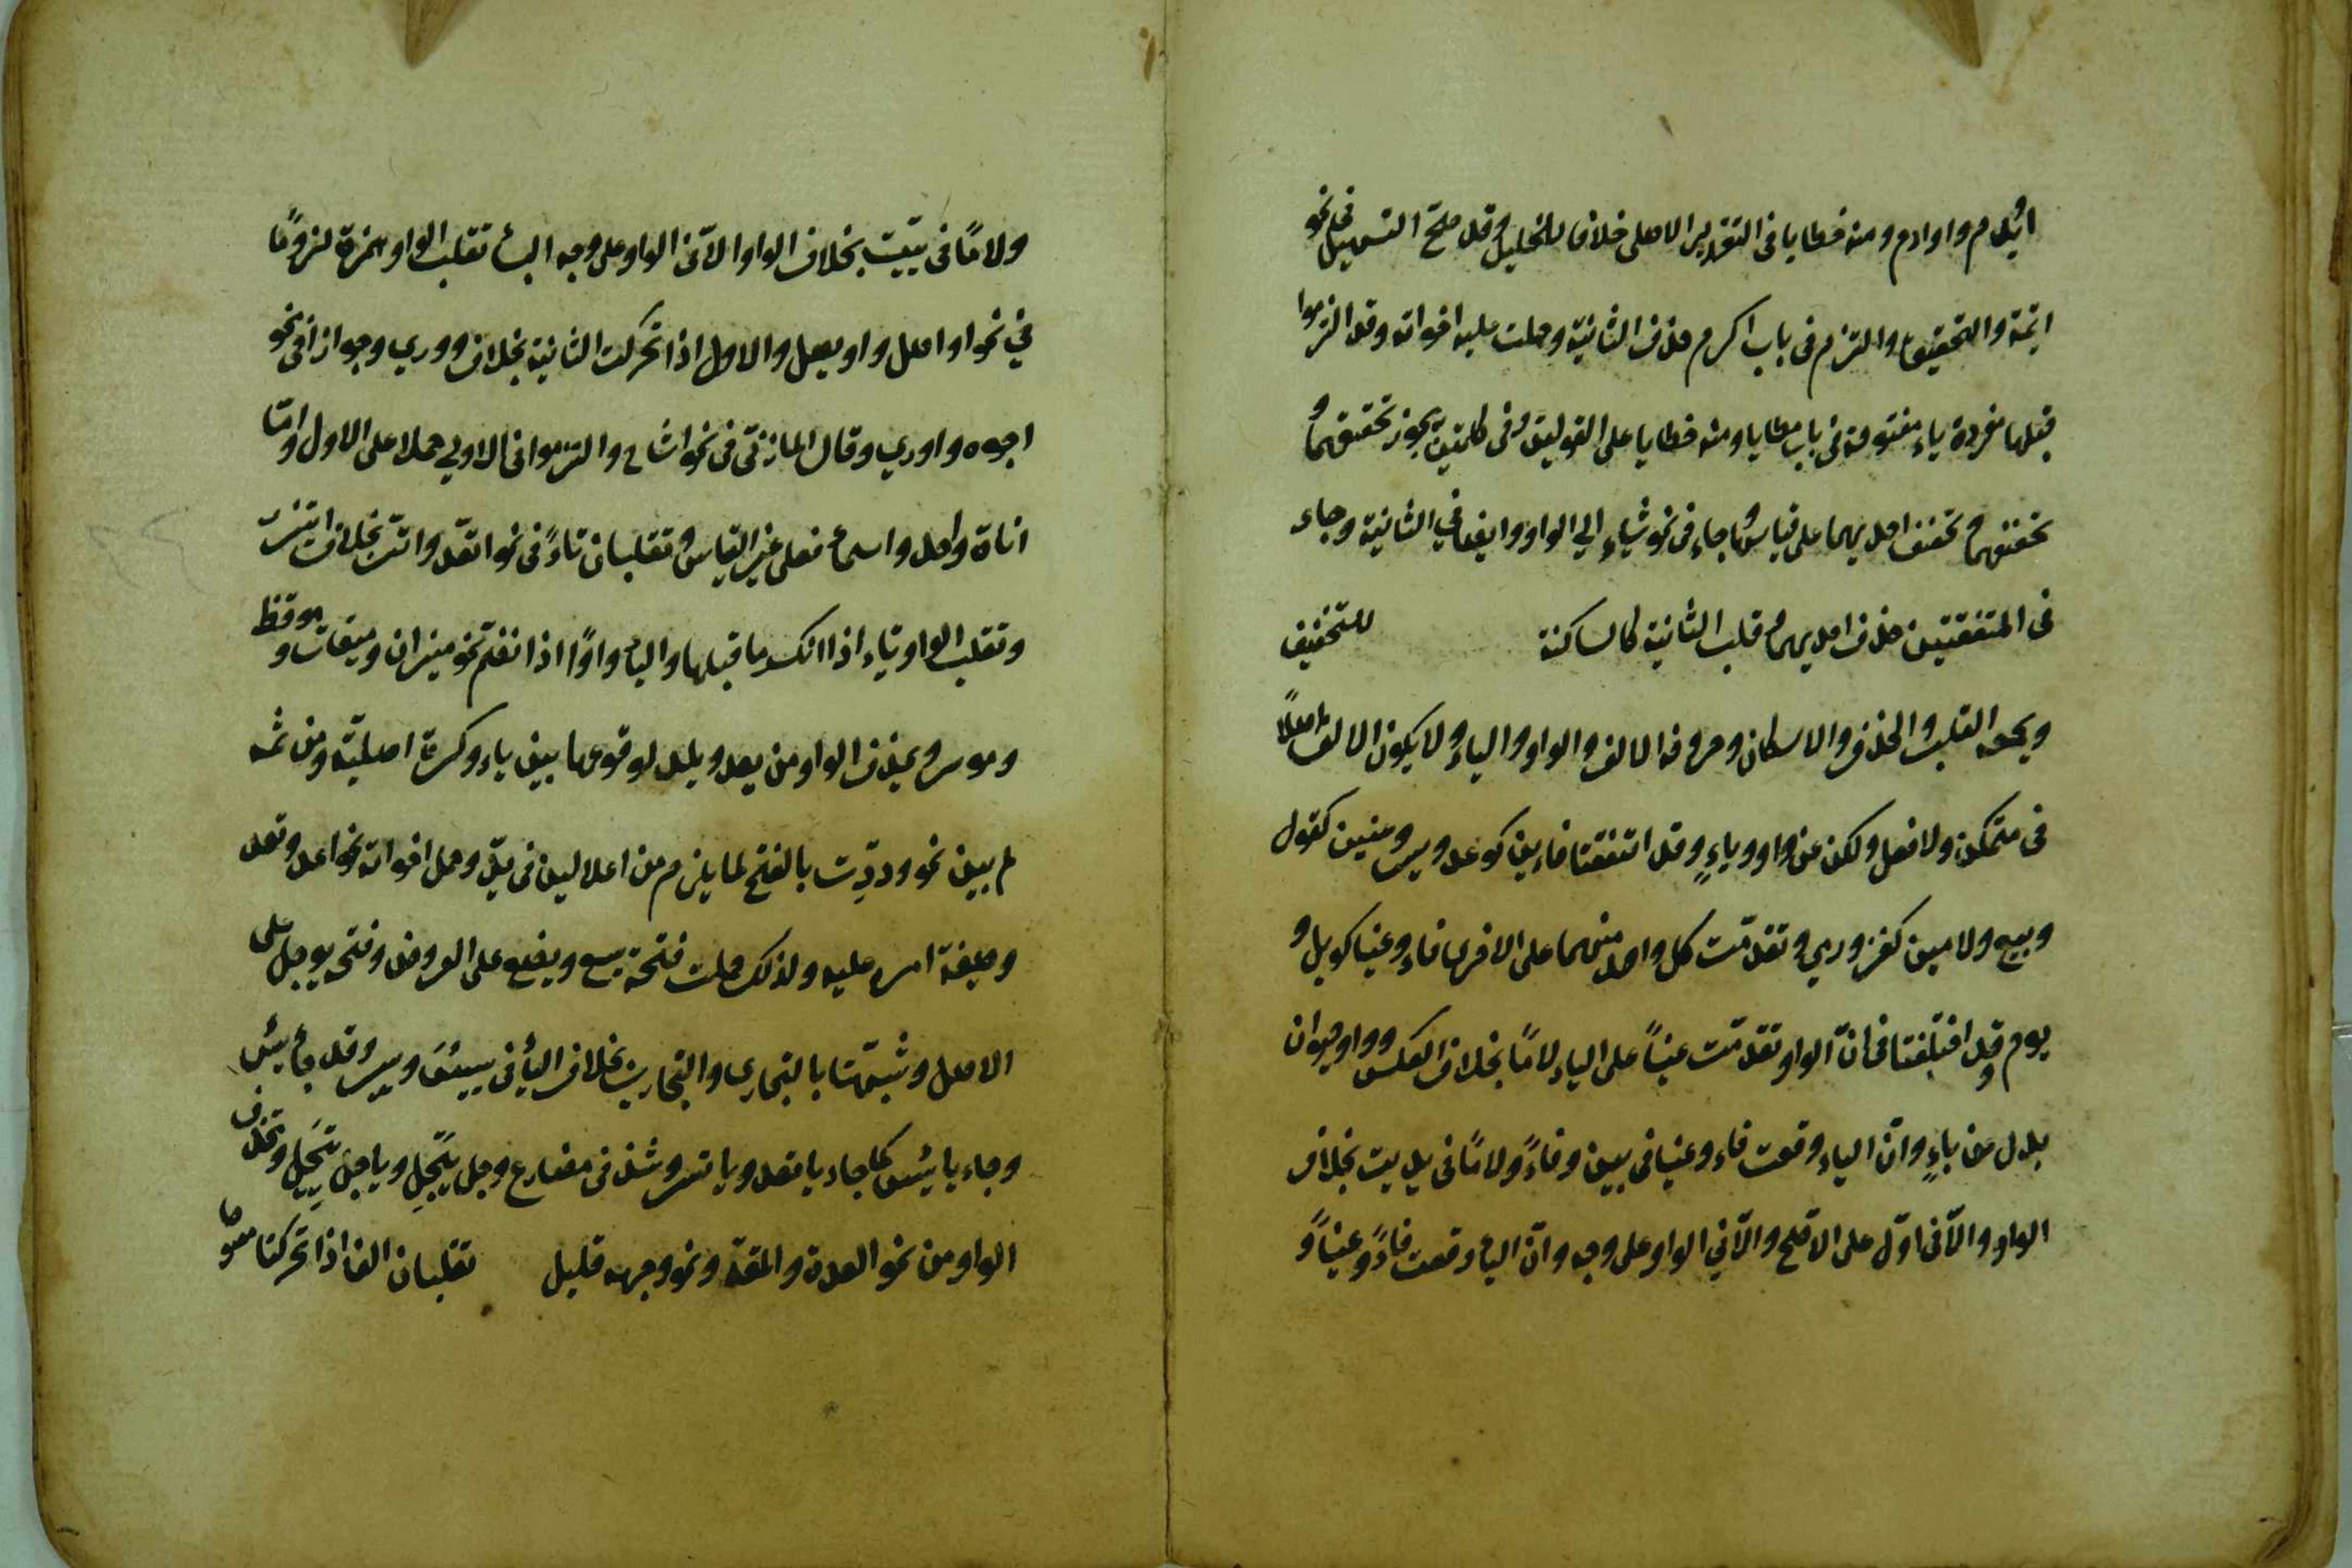 اويدم واوادم ومنه خطايا في التقدير الاصلي خلافا للخليل وقد صحّ التسهيل في نحو
ائمة والتحقيق والتزم في باب اكرم حذف الثانية وحملت عليه اخواته وقد التزموا
قبلها مفردة ياء مفتوحة في باب مطايا ومنه خطايا على القولين وفي كلمتين يجوز تحقيقهما و
تخفيفهما وتخفيف احديهما على قياسها وجاء في نحو يشاء الي الواو وايضا في الثانية وجاء
في المتفقتين حذف احديهما وقلب الثانية كالساكنة للتخفيف
ويجمعه القلب والحذف والاسكان وحروفه الالف والواو والياء ولا يكون الالف اصلاً
في متمكن ولا فعل ولكن عن واو وياءٍ وقد اتفقتا فاءين كوعد ويسر وعينين كقول
وبيع ولامين كغزو ورمي وتقدّمت كل واحد منهما على الاخرى فاء وعينا كويل و
يوم وقد اختلفتا في انّ الواو تقدّمت عيناً على الياء لامًا بخلاف العكس وواو حيوان
بدل من ياءٍ وانّ الياء وقعت فاء وعينا في يين وفاءً ولامًا في يديت بخلاف
الواو والّا في اوّل على الاصّح والّا في الواو على وجه وانّ الياء وقعت فاءً وعيناً و
ولامًا في ييّيت بخلاف الواو الّا في الواو على وجه الياء تقلب الواو همزة لزومًا
في نحو اواصل واويصل والاول اذا تحركت الثانية بخلاف ووري وجوازا في نحو
اجوه واوري وقال المازنيّ في نحو اشاح والتزموا في الاولي حملا على الاول وامّا
اناة واحد واسماء فعلى غير القياس وتقلبان تاءً في نحو اتّعد واتّسر بخلاف ايتزر
وتقلب الواو ياء اذا انكسر ما قبلها والياء واوًا اذا انضم نحو ميزان وميقات وموقظ
وموسر ويحذف الواو من يعد ويلد لوقوعها بين ياء وكسرة اصليّة ومن ثمه
لم يبين نحو وددّت بالفتح لما يلزم من اعلالين في يدّ وحمل اخواته نحو اعد وتعد
وصيغة امره عليه ولذلك حملت فتحة يسع ويضع على العروض وفتحه يوجل على
الاصل وشبّهتا بالتجاري والتجارب بخلاف الياء في ييئس وييسر وقد جاء يئس
وجاء يايئس كما جاء ياتعد وياتسر وشذ في مضارع وجل يَيجَل وياجل ييجَل وتحذف
الواو من نحو العدة والمقة ونحو وجهه قليل تقلبان الفا اذا تحركتا مفتوحا